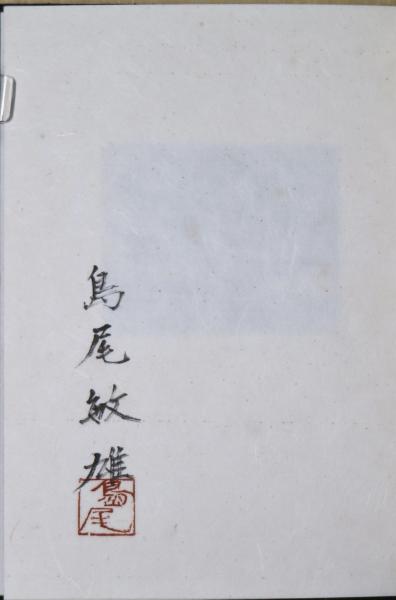 島尾敏雄
島尾